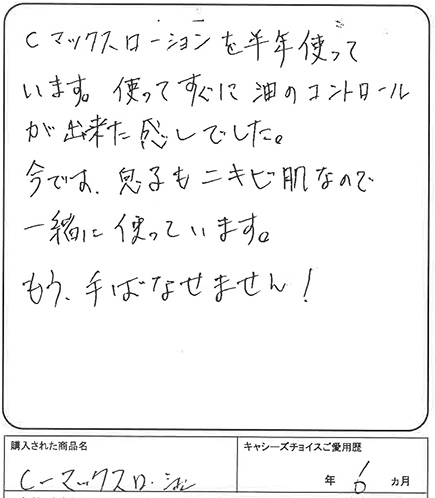 Cマックスローションを半年使って
います。使ってすぐに油のコントロール
が出来た感じでした。
今では、息子もニキビ肌なので
一緒に使っています。
もう、手ばなせません!
購入された商品名
キャシーズチョイスご愛用歴
C-マックスローション
年 6 ヵ月